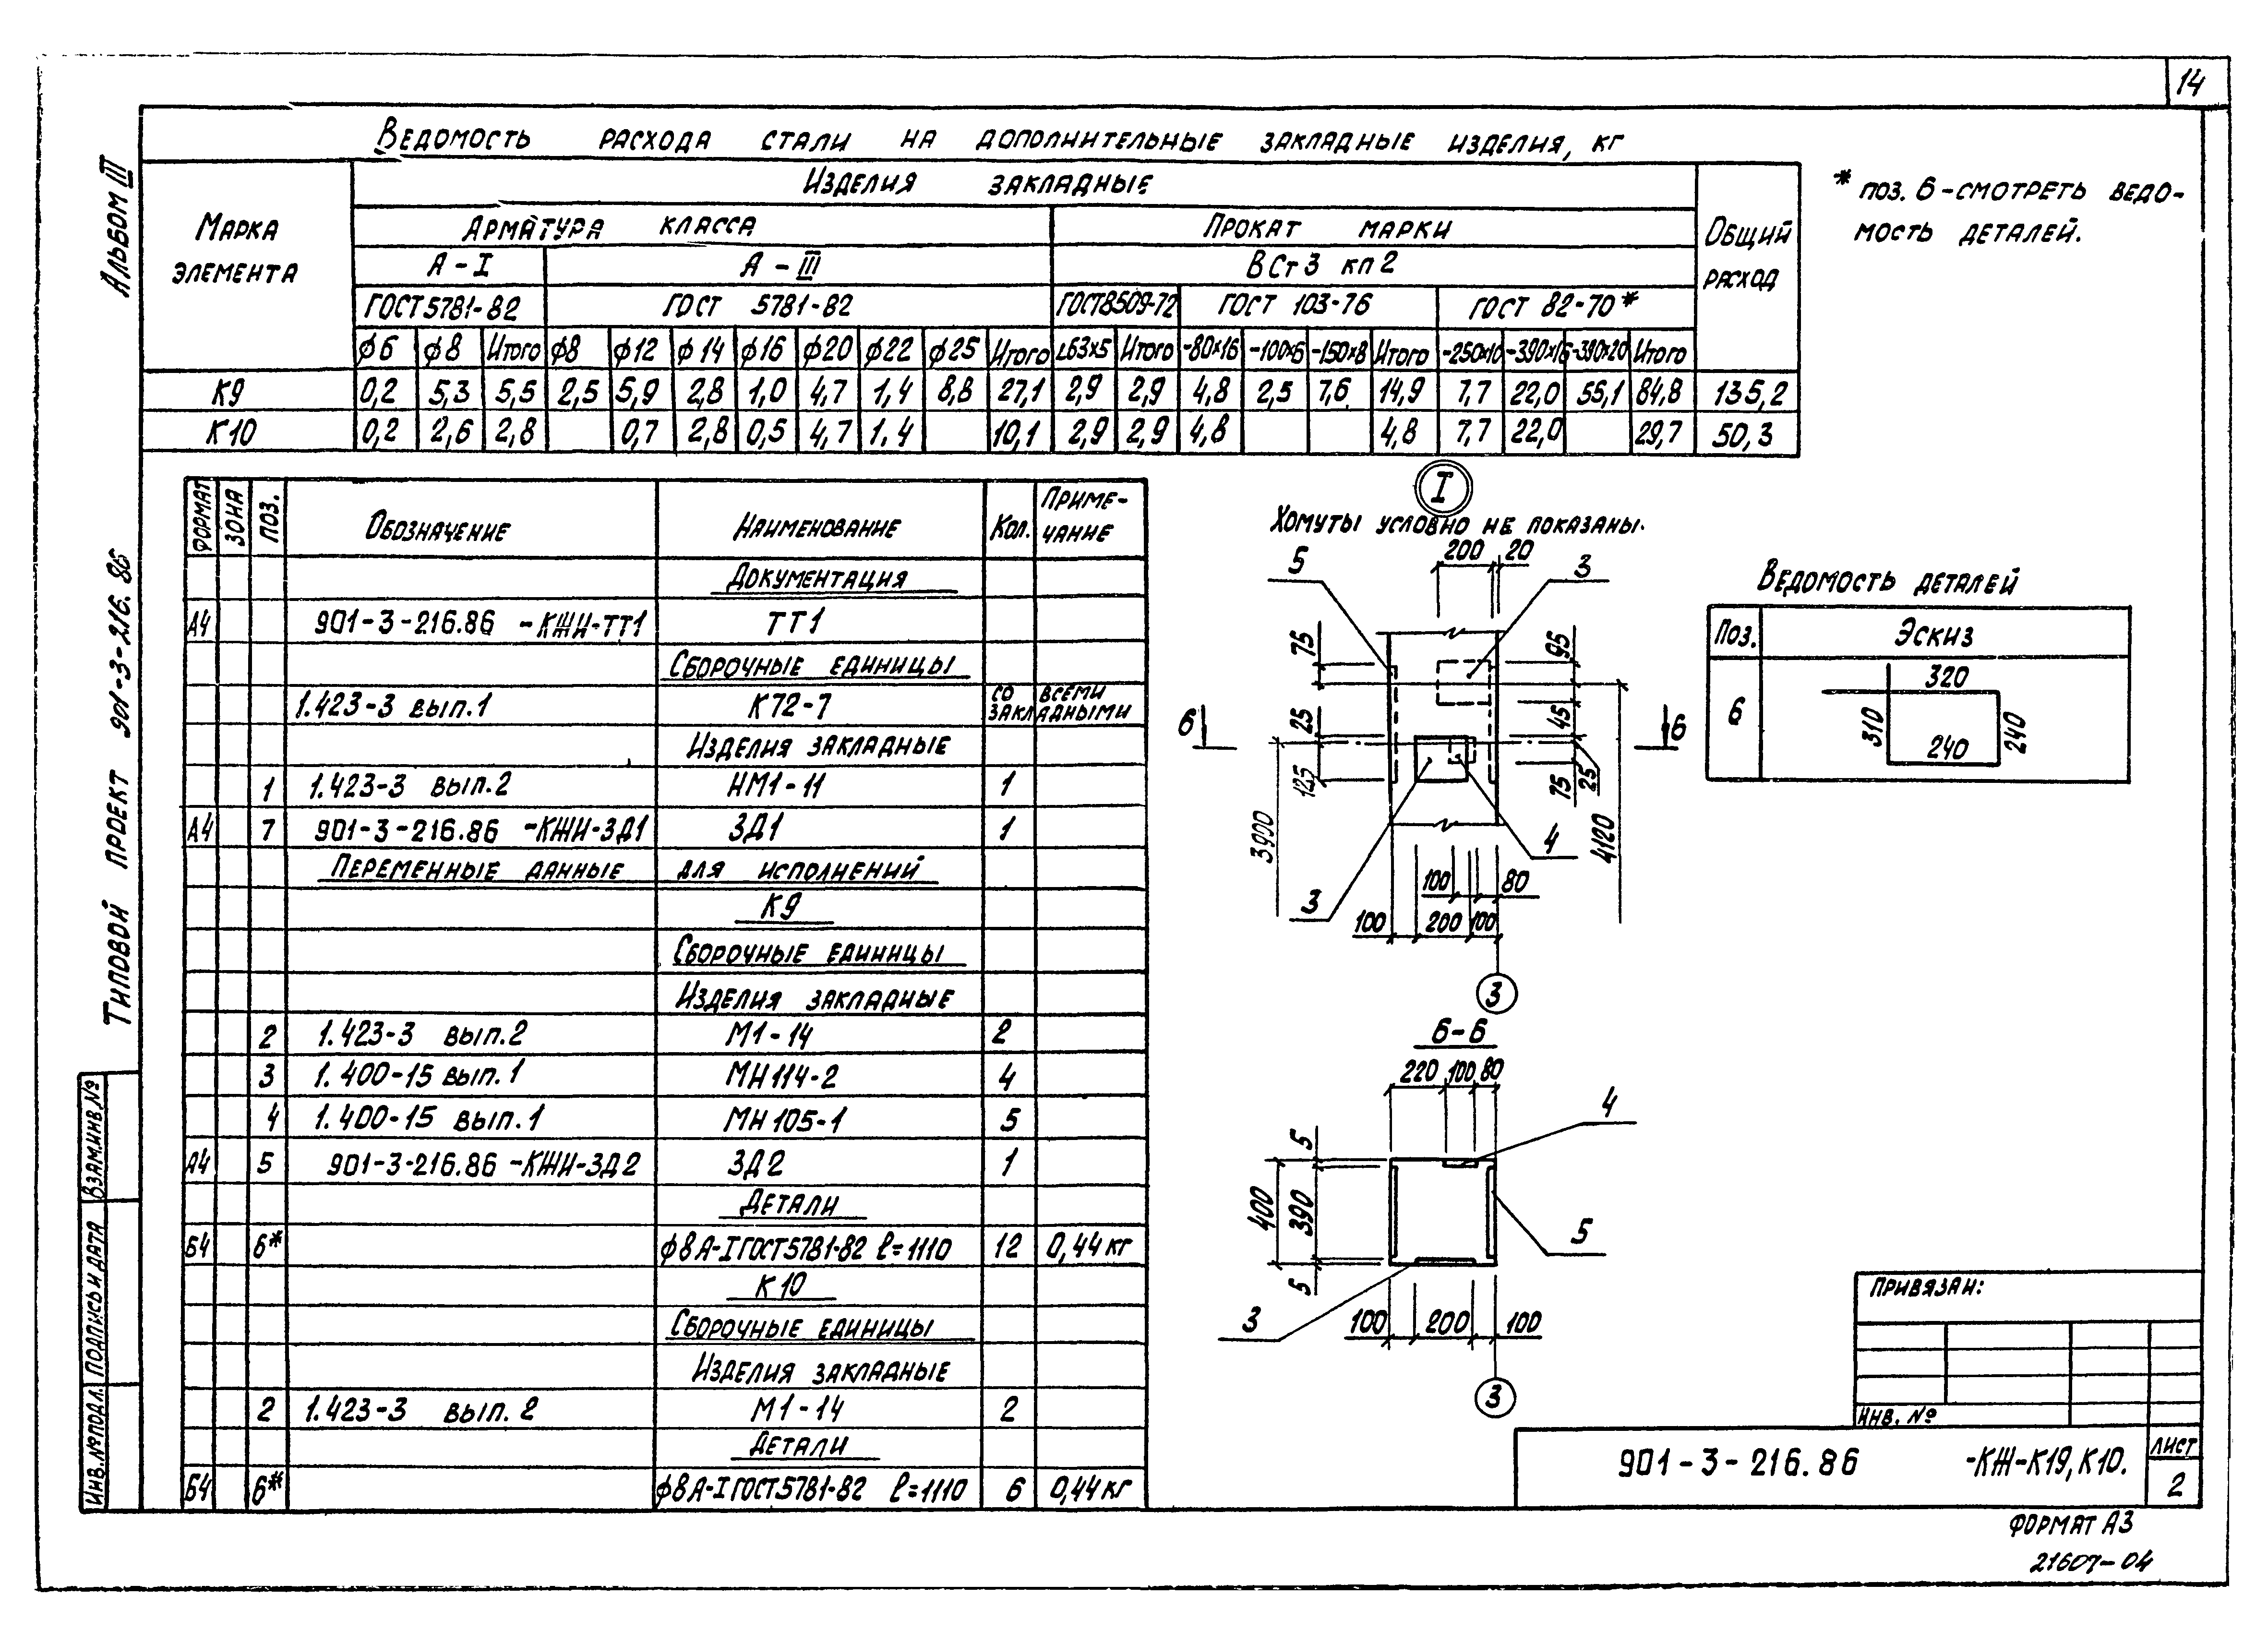 14
Альбом III
Типовой проект 901-3-216.86
Ведомость расхода стали на дополнительные закладные изделия, кг
Марка элемента
Изделия закладные
Общий расход
Арматура класса
Прокат марки
А-I
А-III
ВСт3 кп2
ГОСТ 5781-82
ГОСТ 5781-82
ГОСТ 8509-72
ГОСТ 103-76
ГОСТ 82-70*
ф6 ф8 Итого ф8 ф12 ф14 ф16 ф20 ф22 ф25 Итого L63х5 Итого -80х16 -100х6 -150х8 Итого -250х10 -390х16 -390х20 Итого
К9 0,2 5,3 5,5 2,5 5,9 2,8 1,0 4,7 1,4 8,8 27,1 2,9 2,9 4,8 2,5 7,6 14,9 7,7 22,0 55,1 84,8 135,2
К10 0,2 2,6 2,8 0,7 2,8 0,5 4,7 1.4 10,1 2,9 2,9 4,8 4,8 7,7 22,0 29,7 50,3
* поз. 6 - смотреть ведо-
мость деталей.
Формат Зона Поз. Обозначение Наименование Кол. Приме-
чание
Документация
А4 901-3-216.86 -КЖИ-ТТ1 ТТ1
Сборочные единицы
1.423-3 вып.1 К72-7 со всеми
закладными
Изделия закладные
1 1.423-3 вып.2 НМ1-11 1
А4 7 901-3-216.86 -КЖИ-ЗД1 ЗД1 1
Переменные данные для исполнений
К9
Сборочные единицы
Изделия закладные
2 1.423-3 вып.2 М1-14 2
3 1.400-15 вып.1 МН114-2 4
4 1.400-15 вып.1 МН105-1 5
А4 5 901-3-216.86 -КЖИ-ЗД2 ЗД2 1
Детали
Б4 6* ф8А-I ГОСТ5781-82 ℓ=1110 12 0,44кг
К10
Сборочные единицы
Изделия закладные
2 1.423-3 вып.2 М1-14 2
Детали
Б4 6* ф8А-I ГОСТ5781-82 ℓ=1110 6 0,44кг
I
Хомуты условно не показаны.
200 20
5
3
75
95
25
45
6
6
125
75
25
3900
4120
4
3
100 80
100 200 100
3
6-6
220 100 80
4
5
400
390
5
5
3
100 200 100
3
Ведомость деталей
Поз. Эскиз
6
320
310
240
240
Взам.инв.№
Подпись и дата
Инв.№подл.
Привязан:
Инв. №
901-3-216.86 -КЖ-К19, К10.
Лист
2
Формат А3
21607-04